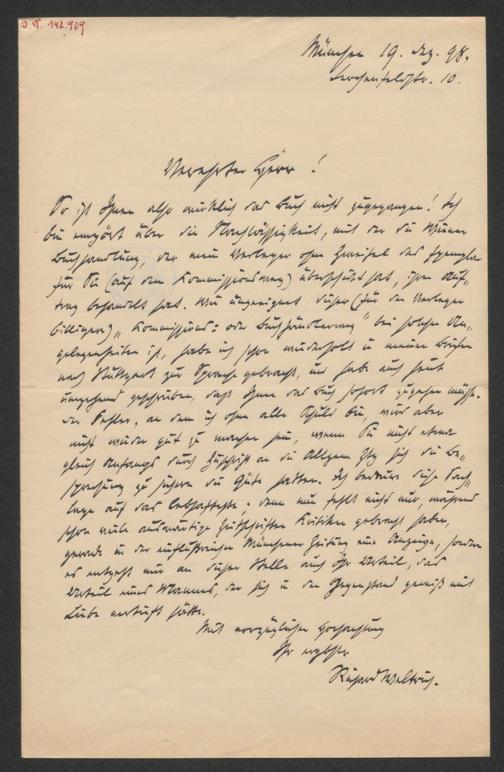 I.N. 142.969
München 19. Dez. 98.
Lerchenfeldstr. 10.
Verehrter Herr!
So ist Ihnen also wirklich das Buch nicht zugegangen! Ich
bin empört über die Nachlässigkeit, mit der die Wiener
Buchhandlung, der mein Verleger ohne Zweifel das Exemplar
für Sie (auf dem Kommissionsweg) überschickt hat, ihren Auf-
trag behandelt hat. Wie ungeeignet dieser (für den Verleger
billigere) „Kommissions= oder Buchhändlerweg" bei solchen An-
gelegenheiten ist, habe ich schon wiederholt in meinen Briefen
nach Stuttgart zur Sprache gebracht, und habe auch heut
umgehend geschrieben, daß Ihnen das Buch sofort zugehen müsse.
Der Fehler, an dem ich ohne alle Schuld bin, wird aber
nicht wieder gut zu machen sein, wenn Sie nicht etwa
gleich Anfangs durch Zuschrift an die Allgem. Ztg sich die Be-
sprechung zu sichern die Güte hatten. Ich bedaure diese Sach-
lage auf das lebhafteste; denn mir fehlt nicht nur, während
schon viele auswärtige Zeitschriften Kritiken gebracht haben,
gerade in der einflußreichen Münchener Zeitung eine Anzeige, sondern
es entgeht mir an dieser Stelle auch Ihr Urteil, das
Urteil eines Mannes, der sich in den Gegenstand gewiß mit
Liebe vertieft hätte.
Mit vorzüglicher Hochachtung
Ihr ergebster
Richard Weltrich.